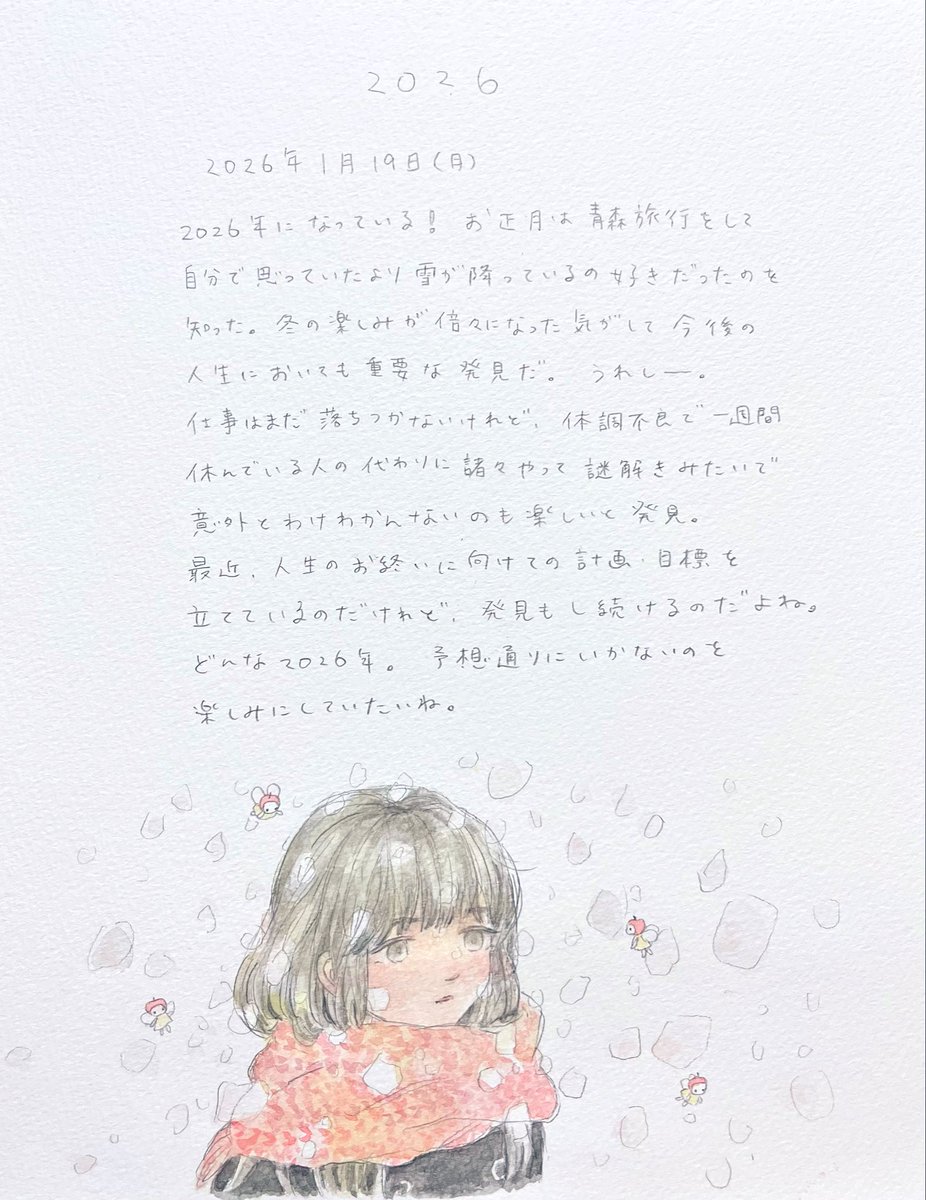 2026
2026年1月19日(月)
2026年になっている! お正月は青森旅行をして
自分で思っていたより雪が降っているの好きだったのを
知った。冬の楽しみが倍々になった気がして今後の
人生においても重要な発見だ。うれしー。
仕事はまだ落ちつかないけれど、体調不良で一週間
休んでいる人の代わりに諸々やって謎解きみたいで
意外とわけわかんないのも楽しいと発見。
最近、人生のお終いに向けての計画・目標を
立てているのだけれど、発見もし続けるのだよね。
どんな2026年。予想通りにいかないのを
楽しみにしていたいね。